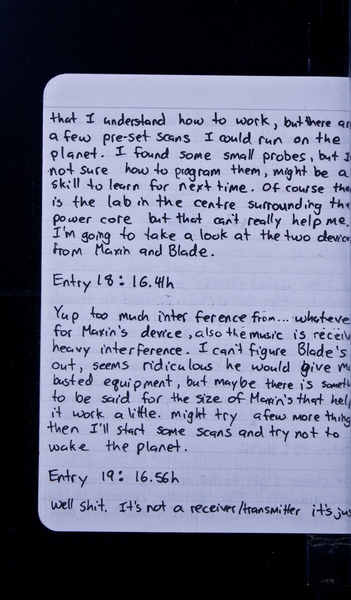 that I understand how to work, but there ar
a few pre-set scans I could run on the
planet. I found some small probes, but I
not sure how to program them, might be a
skill to learn for next time. Of course the
is the lab in the centre surrounding the
power core but that can't really help me.
I'm going to take a look at the two device
from Maxin and Blade.
Entry 18: 16.41h
Yup too much interference from... whateve
for Maxin's device, also the music is receiv
heavy interference. I can't figure Blade's
out, seems ridiculous he would give m
busted equipment, but maybe there is someth
to be said for the size of Maxin's that hel
it work a little. might try a few more thing
then I'll start some scans and try not to
wake the planet.
Entry 19: 16.56h
Well shit. It's not a receiver/transmitter it's jus